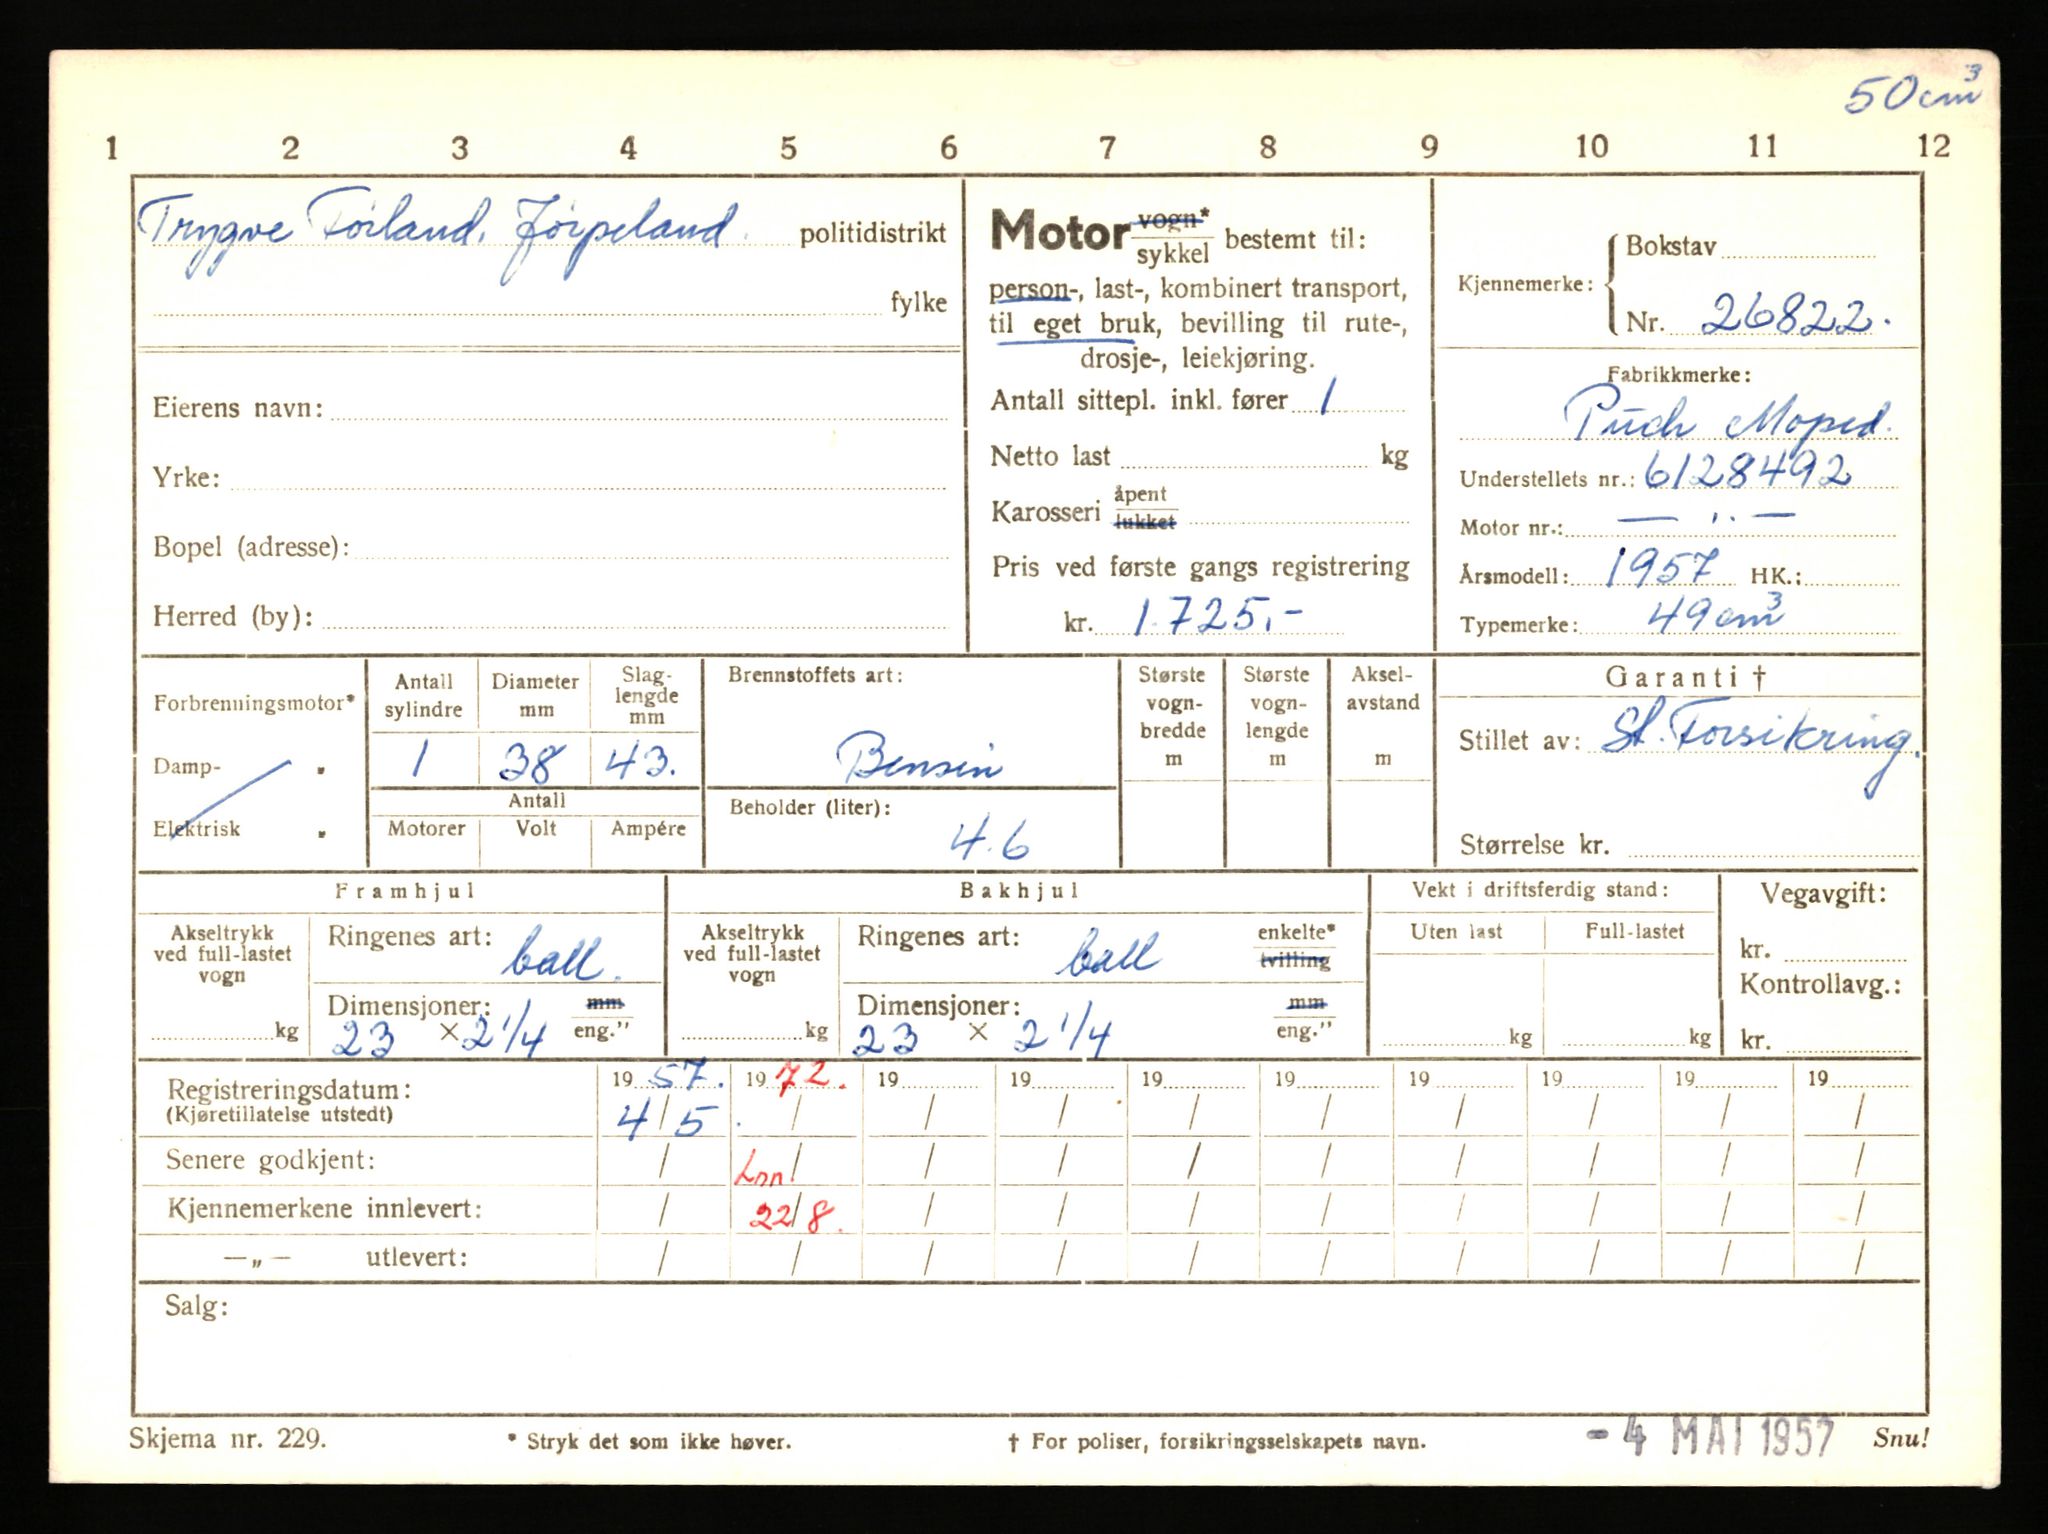 50cm³
1 2 3 4 5 6 7 8 9 10 11 12
Trygve Førland, Jørpeland. politidistrikt
fylke
Eierens navn:
Yrke:
Bopel (adresse):
Herred (by):
Motor vogn* sykkel bestemt til:
person-, last-, kombinert transport,
til eget bruk, bevilling til rute-,
drosje-, leiekjøring.
Antall sittepl. inkl. fører 1
Netto last kg
Karosseri åpent lukket
Pris ved første gangs registrering
kr. 1.725,-
Kjennemerke: Bokstav
Nr. 26822.
Fabrikkmerke:
Puch Moped.
Understellets nr.: 6128492
Motor nr.: — ,, —
Årsmodell: 1957 HK.:
Typemerke: 49cm³
Forbrenningsmotor*
Damp- "
Elektrisk "
Antall sylindre
Diameter mm
Slag-
lengde
mm
1 38 43.
Antall
Motorer Volt Ampére
Brennstoffets art:
Bensin
Beholder (liter):
4.6
Største
vogn-
bredde
m
Største
vogn-
lengde
m
Aksel-
avstand
m
Garanti †
Stillet av: St. Forsikring.
Størrelse kr.
Framhjul
Akseltrykk
ved full-lastet
vogn
kg
Ringenes art: ball.
Dimensjoner: mm
23 × 2 1/4 eng."
Bakhjul
Akseltrykk
ved full-lastet
vogn
kg
Ringenes art: ball enkelte* tvilling
Dimensjoner: mm
23 × 2 1/4 eng."
Vekt i driftsferdig stand:
Uten last Full-lastet
kg kg
Vegavgift:
kr.
Kontrollavg.:
kr.
Registreringsdatum: 19 57. 19 72. 19 19 19 19 19 19 19 19
(Kjøretillatelse utstedt) 4/5 / / / / / / / / /
Senere godkjent: / / / / / / / / / /
Inn
Kjennemerkene innlevert: / 22/8. / / / / / / / /
—„— utlevert: / / / / / / / / / /
Salg:
Skjema nr. 229. * Stryk det som ikke høver. † For poliser, forsikringsselskapets navn. -4 MAI 1957 Snu!